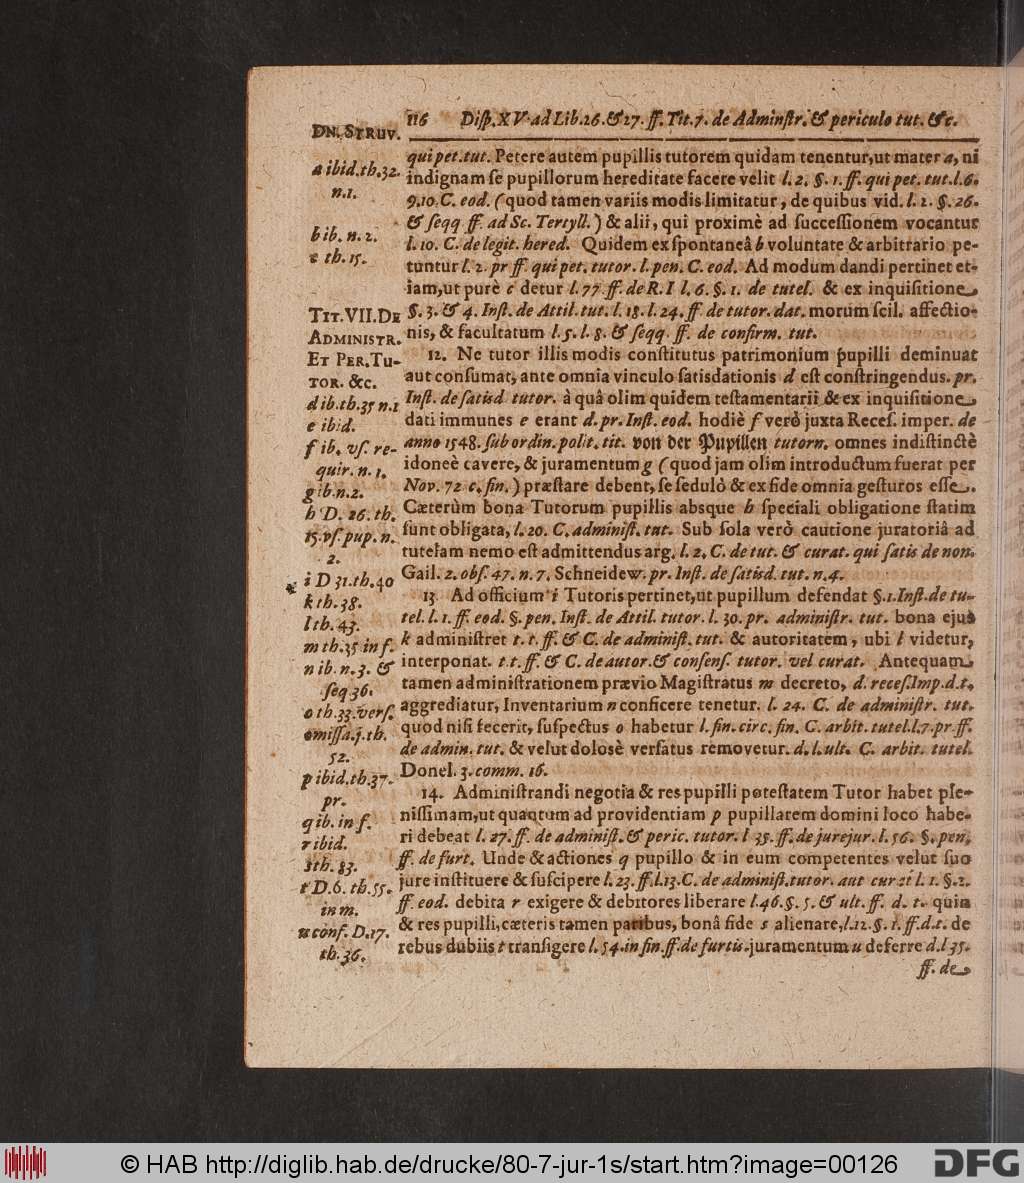 116 Diſp. XV. ad Lib. 26. & 27. ff. Tit. 7. de Adminſtr. & periculo tut. &c.
DN. STRUV.
a ibid. th. 32.
n. 1.
b ib. n. 2.
c th. 15.
TIT. VII. DE
ADMINISTR.
ET PER. TU-
TOR. &c.
d ib. th. 35 n. 1
e ibid.
f ib. vſ. re-
quir. n. 1.
g ib. n. 2.
h D. 26. th.
15. vſ. pup. n.
2.
i D 31. th. 40
k th. 38.
l th. 43.
m th. 35 in f.
n ib. n. 3. &
ſeq 36.
o th. 33. verſ.
omiſſa. j. th.
52.
p ibid. th. 37.
pr.
q ib. in f.
r ibid.
s th. 83.
t D. 6. th. 55.
in m.
u conf. D. 17.
th. 36.
qui pet. tut. Petere autem pupillis tutorem quidam tenentur, ut mater a, ni
indignam ſe pupillorum hereditate facere velit l. 2. §. 1. ff. qui pet. tut. l. 6.
9. 10. C. eod. (quod tamen variis modis limitatur, de quibus vid. l. 2. §. 26.
& ſeqq ff. ad Sc. Tertyll.) & alii, qui proximè ad ſucceſſionem vocantur
l. 10. C. de legit. hered. Quidem ex ſpontaneâ b voluntate & arbitrario pe-
tuntur l. 2. pr ff. qui pet. tutor. l. pen. C. eod. Ad modum dandi pertinet et-
iam, ut purè c detur l. 77 ff. de R. I l. 6. §. 1. de tutel. & ex inquiſitione
§. 3. & 4. Inſt. de Attil. tut. l. 18. l. 24. ff. de tutor. dat. morum ſcil. affectio-
nis, & facultatum l. 5. l. 8. & ſeqq. ff. de confirm. tut.
12. Ne tutor illis modis conſtitutus patrimonium pupilli deminuat
aut conſumat, ante omnia vinculo ſatisdationis d eſt conſtringendus. pr.
Inſt. de ſatisd tutor. à quâ olim quidem teſtamentarii & ex inquiſitione
dati immunes e erant d. pr. Inſt. eod. hodiè f verò juxta Receſ. imper. de
anno 1548. ſub ordin. polit. tit. von der Pupillen tutorn. omnes indiſtinctè
idoneè cavere, & juramentum g (quod jam olim introductum fuerat per
Nov. 72 c. fin.) præſtare debent, ſe ſedulò & ex fide omnia geſturos eſſe.
Cæterùm bona Tutorum pupillis absque h ſpeciali obligatione ſtatim
ſunt obligata, l. 20. C. adminiſt. tut. Sub ſola verò cautione juratoriâ ad
tutelam nemo eſt admittendus arg. l. 2. C. de tut. & curat. qui ſatis de non.
Gail. 2. obſ. 47. n. 7. Schneidew. pr. Inſt. de ſatisd. tut. n. 4.
13. Ad officium i Tutoris pertinet, ut pupillum defendat §. 1. Inſt. de tu-
tel. l. 1. ff. eod. §. pen. Inſt. de Attil. tutor. l. 30. pr. adminiſtr. tut. bona ejus
k adminiſtret t. t. ff. & C. de adminiſt. tut. & autoritatem, ubi l videtur,
interponat. t. t. ff. & C. de autor. & conſenſ. tutor. vel curat. Antequam
tamen adminiſtrationem prævio Magiſtratus m decreto, d. receſ. Imp. d. t.
aggrediatur, Inventarium n conficere tenetur. l. 24. C. de adminiſtr. tut.
quod niſi fecerit, ſuſpectus o habetur l. fin. circ. fin. C. arbit. tutel. l. 7. pr ff.
de admin. tut. & velut dolosè verſatus removetur. d. l. ult. C. arbit. tutel.
Donel. 3. comm. 16.
14. Adminiſtrandi negotia & res pupilli poteſtatem Tutor habet ple-
niſſimam, ut quantum ad providentiam p pupillarem domini loco habe-
ri debeat l. 27. ff. de adminiſt. & peric. tutor. l 35. ff. de jurejur. l. 56. §. pen.
ff. de furt. Unde & actiones q pupillo & in eum competentes velut ſuo
jure inſtituere & ſuſcipere l. 23. ff. l. 13. C. de adminiſt. tutor. aut curat l. 1. §. 2.
ff. eod. debita r exigere & debitores liberare l. 46. §. 5. & ult. ff. d. t. quin
& res pupilli, cæteris tamen paribus, bonâ fide s alienare, l. 12. §. 1. ff. d. t. de
rebus dubiis t tranſigere l. 54. in fin. ff. de furtis. juramentum u deferre d. l 35.
ff. de
© HAB http://diglib.hab.de/drucke/80-7-jur-1s/start.htm?image=00126
DFG